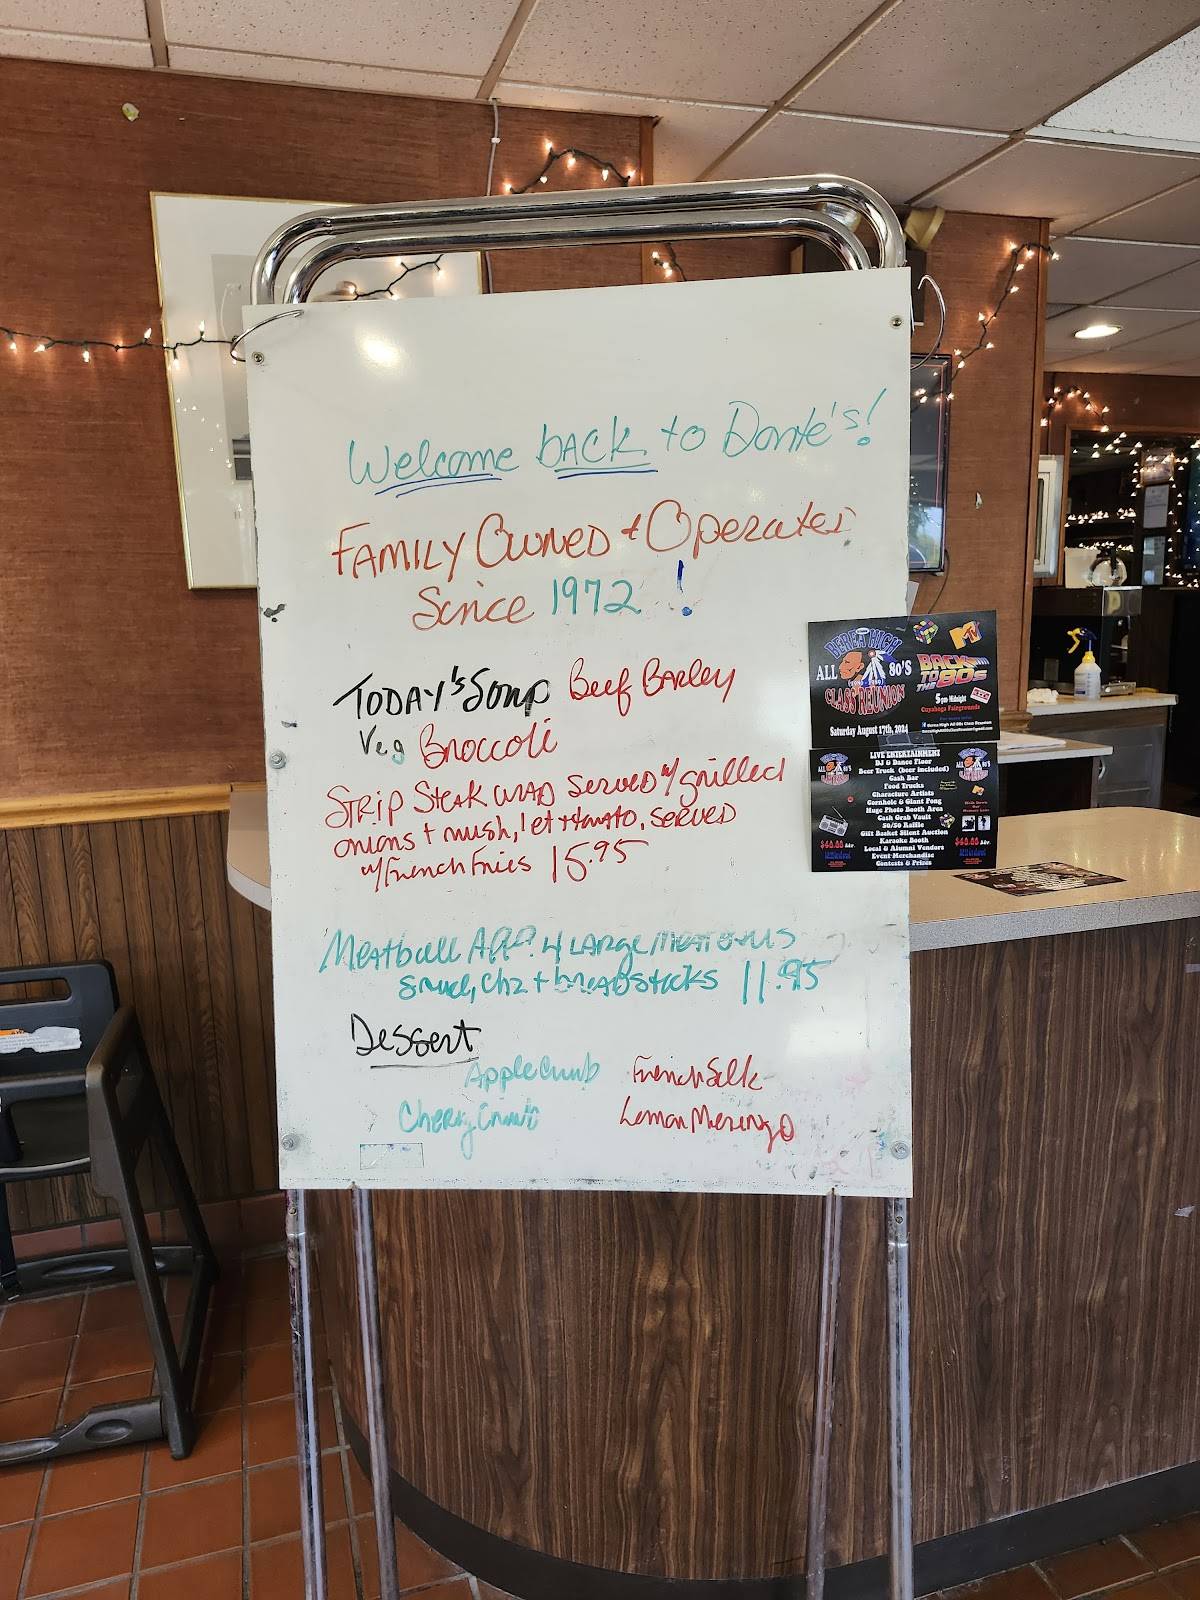 Welcome BACK to Donte's!
FAMILY OWNED & Operated
Since 1972 !
TODAY's Soup Beef BARley
Veg Broccoli
STRIP STEAK WRAP SERVED w/ grilled
onions + mush, let + tomato, SERVED
w/ French Fries 15.95
Meatball APP. 4 LARge Meatballs
Sauce, Chz + breADSticks 11.95
Dessert
Apple Crumb French Silk
Cherry Crumb Lemon Meringe
BEREA HIGH
ALL 80'S
(1980-1989)
CLASS REUNION
Saturday August 17th, 2024
MTV
BACK
TO THE 80s
5 pm-Midnight
Cuyahoga Fairgrounds
Berea High All 80s Class Reunion
LIVE ENTERTAINMENT
DJ & Dance Floor
Beer Truck (beer included)
Cash Bar
Food Trucks
Characture Artists
Cornhole & Giant Pong
Huge Photo Booth Area
Cash Grab Vault
50/50 Raffle
Gift Basket Silent Auction
Karaoke Booth
Local & Alumni Vendors
Event Merchandise
Contests & Prizes
ALL 80'S
$60.00 Adv.
$60.00 Adv.